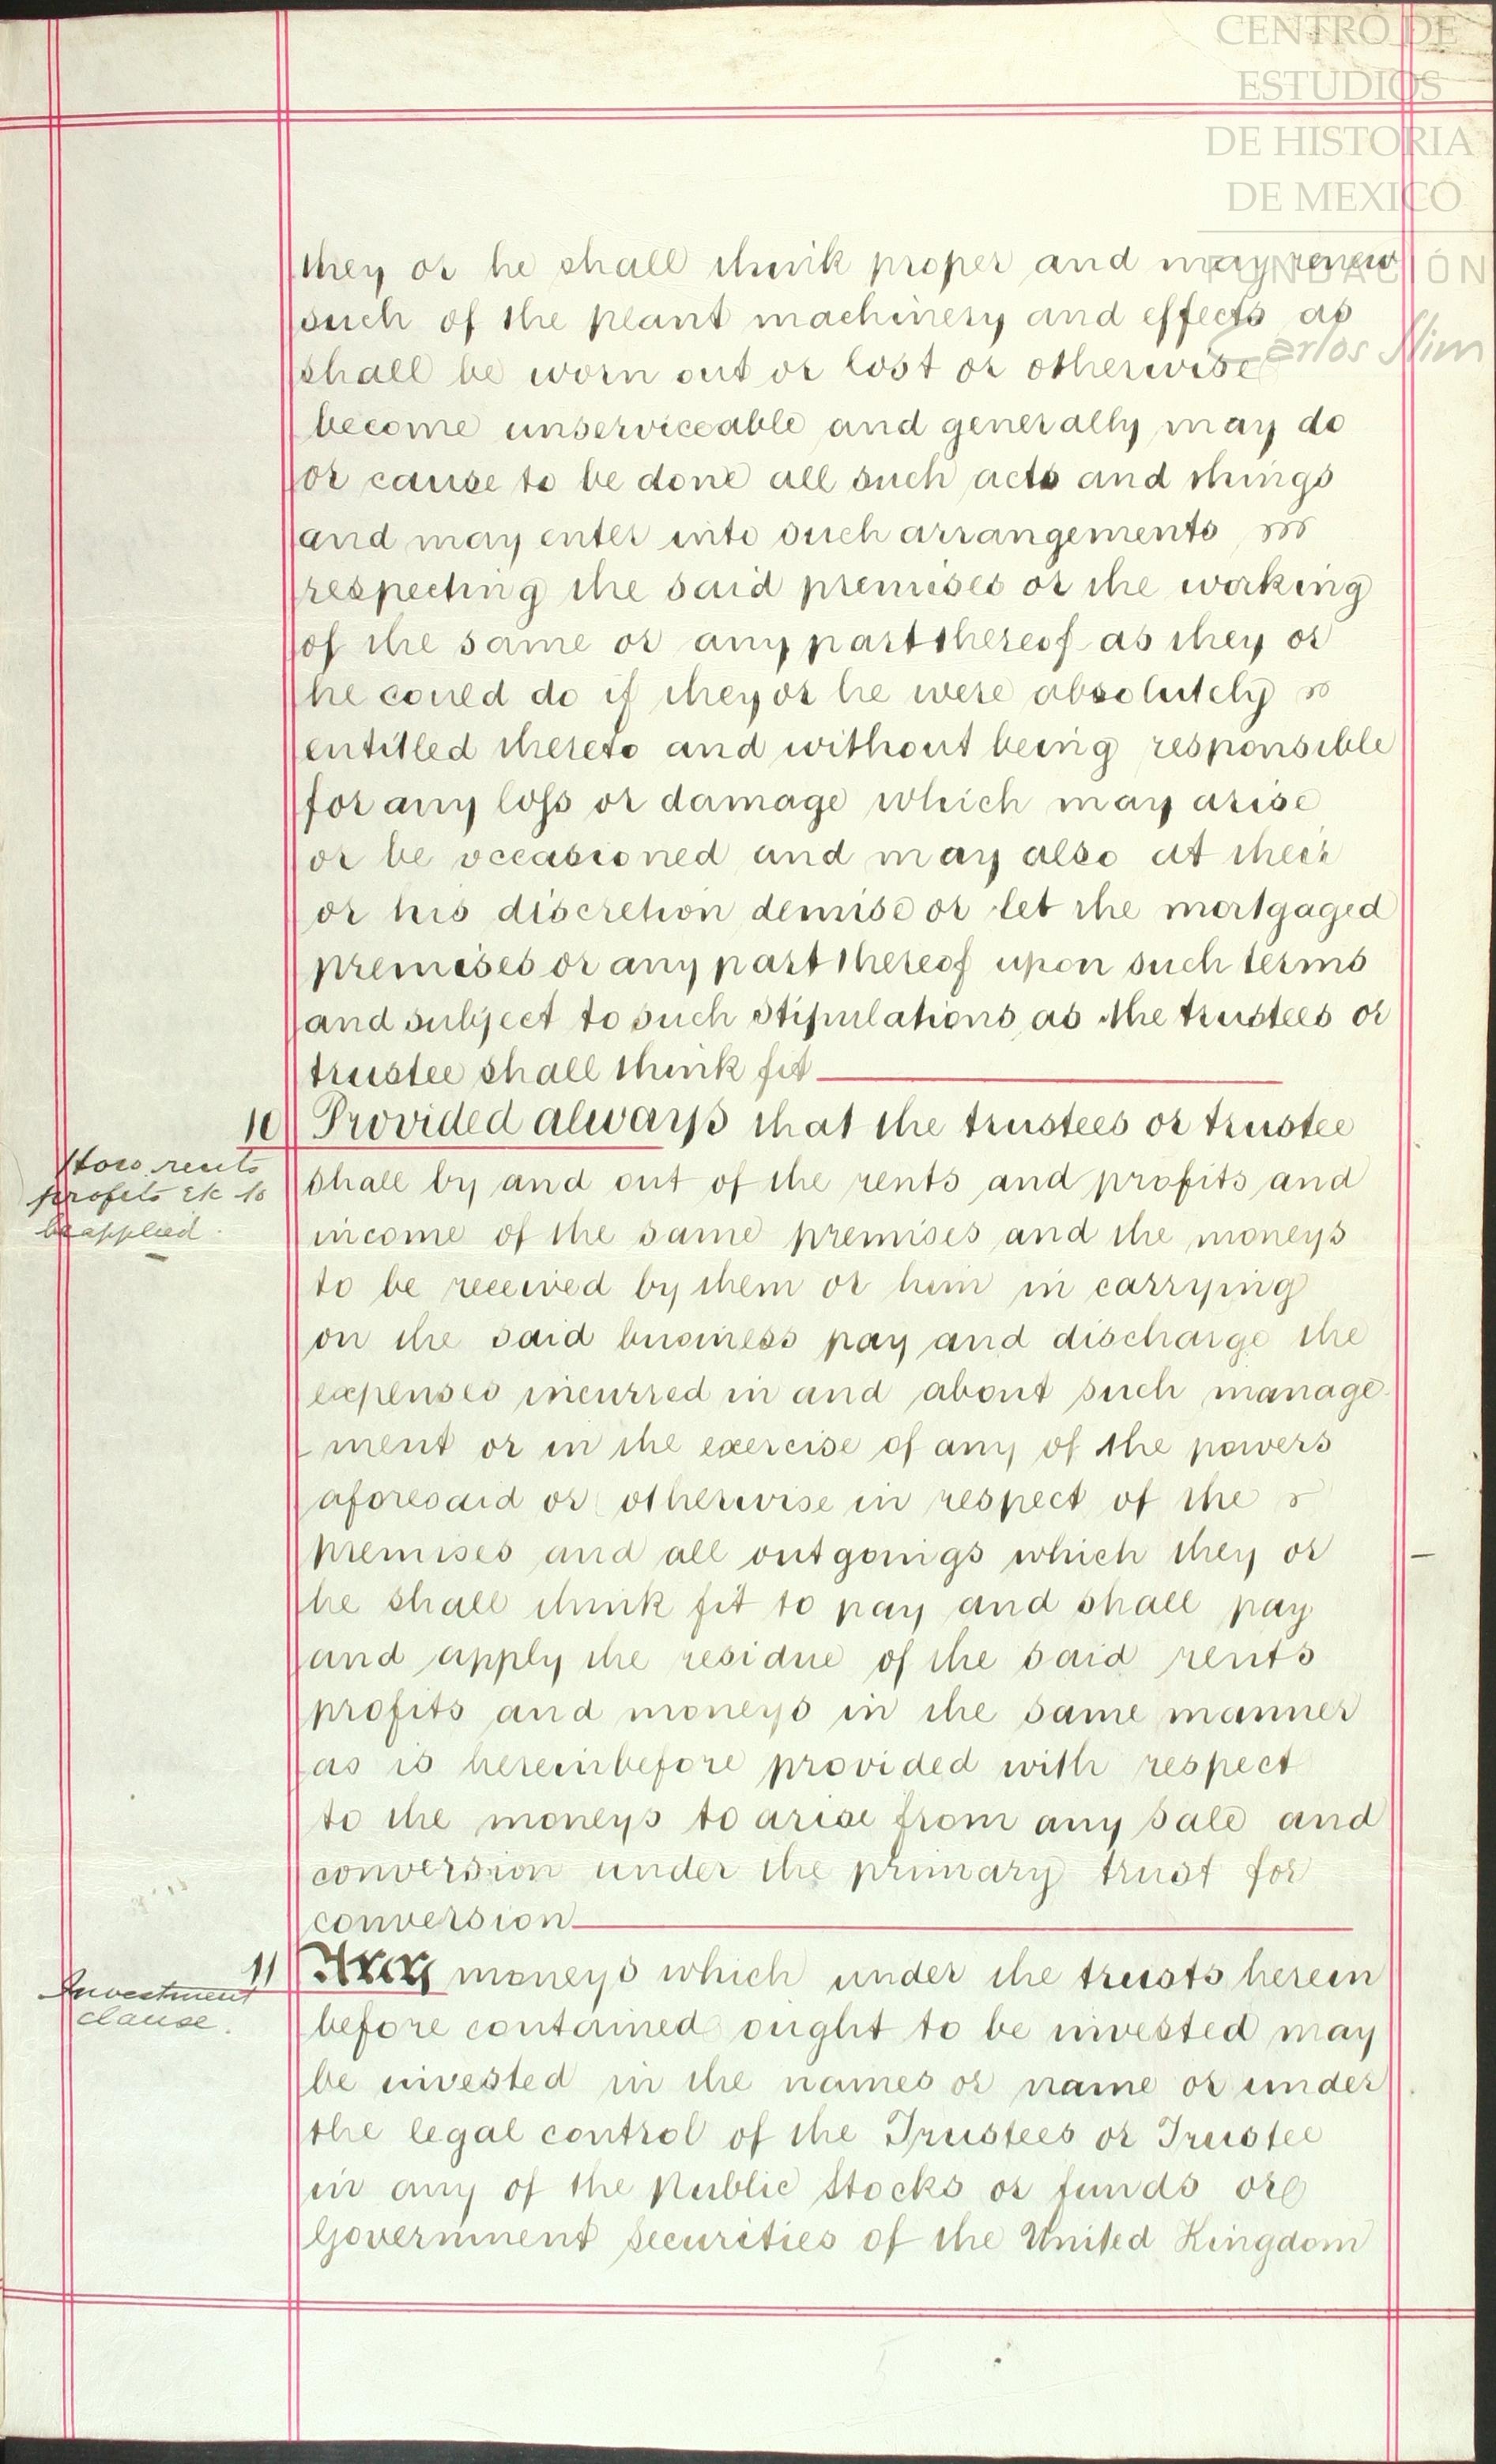 CENTRO DE
ESTUDIOS
DE HISTORIA
DE MEXICO
FUNDACIÓN
Carlos Slim
they or he shall think proper and may renew
such of the plant machinery and effects as
shall be worn out or lost or otherwise
become unserviceable and generally may do
or cause to be done all such acts and things
and may enter into such arrangements
respecting the said premises or the working
of the same or any part thereof as they or
he could do if they or he were absolutely
entitled thereto and without being responsible
for any loss or damage which may arise
or be occasioned and may also at their
or his discretion demise or let the mortgaged
premises or any part thereof upon such terms
and subject to such stipulations as the trustees or
trustee shall think fit
10 Provided always that the trustees or trustee
How rents
profits &c to
be applied.
shall by and out of the rents and profits and
income of the same premises and the moneys
to be received by them or him in carrying
on the said business pay and discharge the
expenses incurred in and about such manage-
-ment or in the exercise of any of the powers
aforesaid or otherwise in respect of the
premises and all outgoings which they or
he shall think fit to pay and shall pay
and apply the residue of the said rents
profits and moneys in the same manner
as is hereinbefore provided with respect
to the moneys to arise from any sale and
conversion under the primary trust for
conversion
11 Any moneys which under the trusts herein
Investment
clause.
before contained ought to be invested may
be invested in the names or name or under
the legal control of the Trustees or Trustee
in any of the Public Stocks or funds or
Government Securities of the United Kingdom